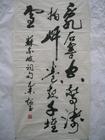 乱石穿空惊涛
拍岸卷起千堆
雪 苏东坡词句